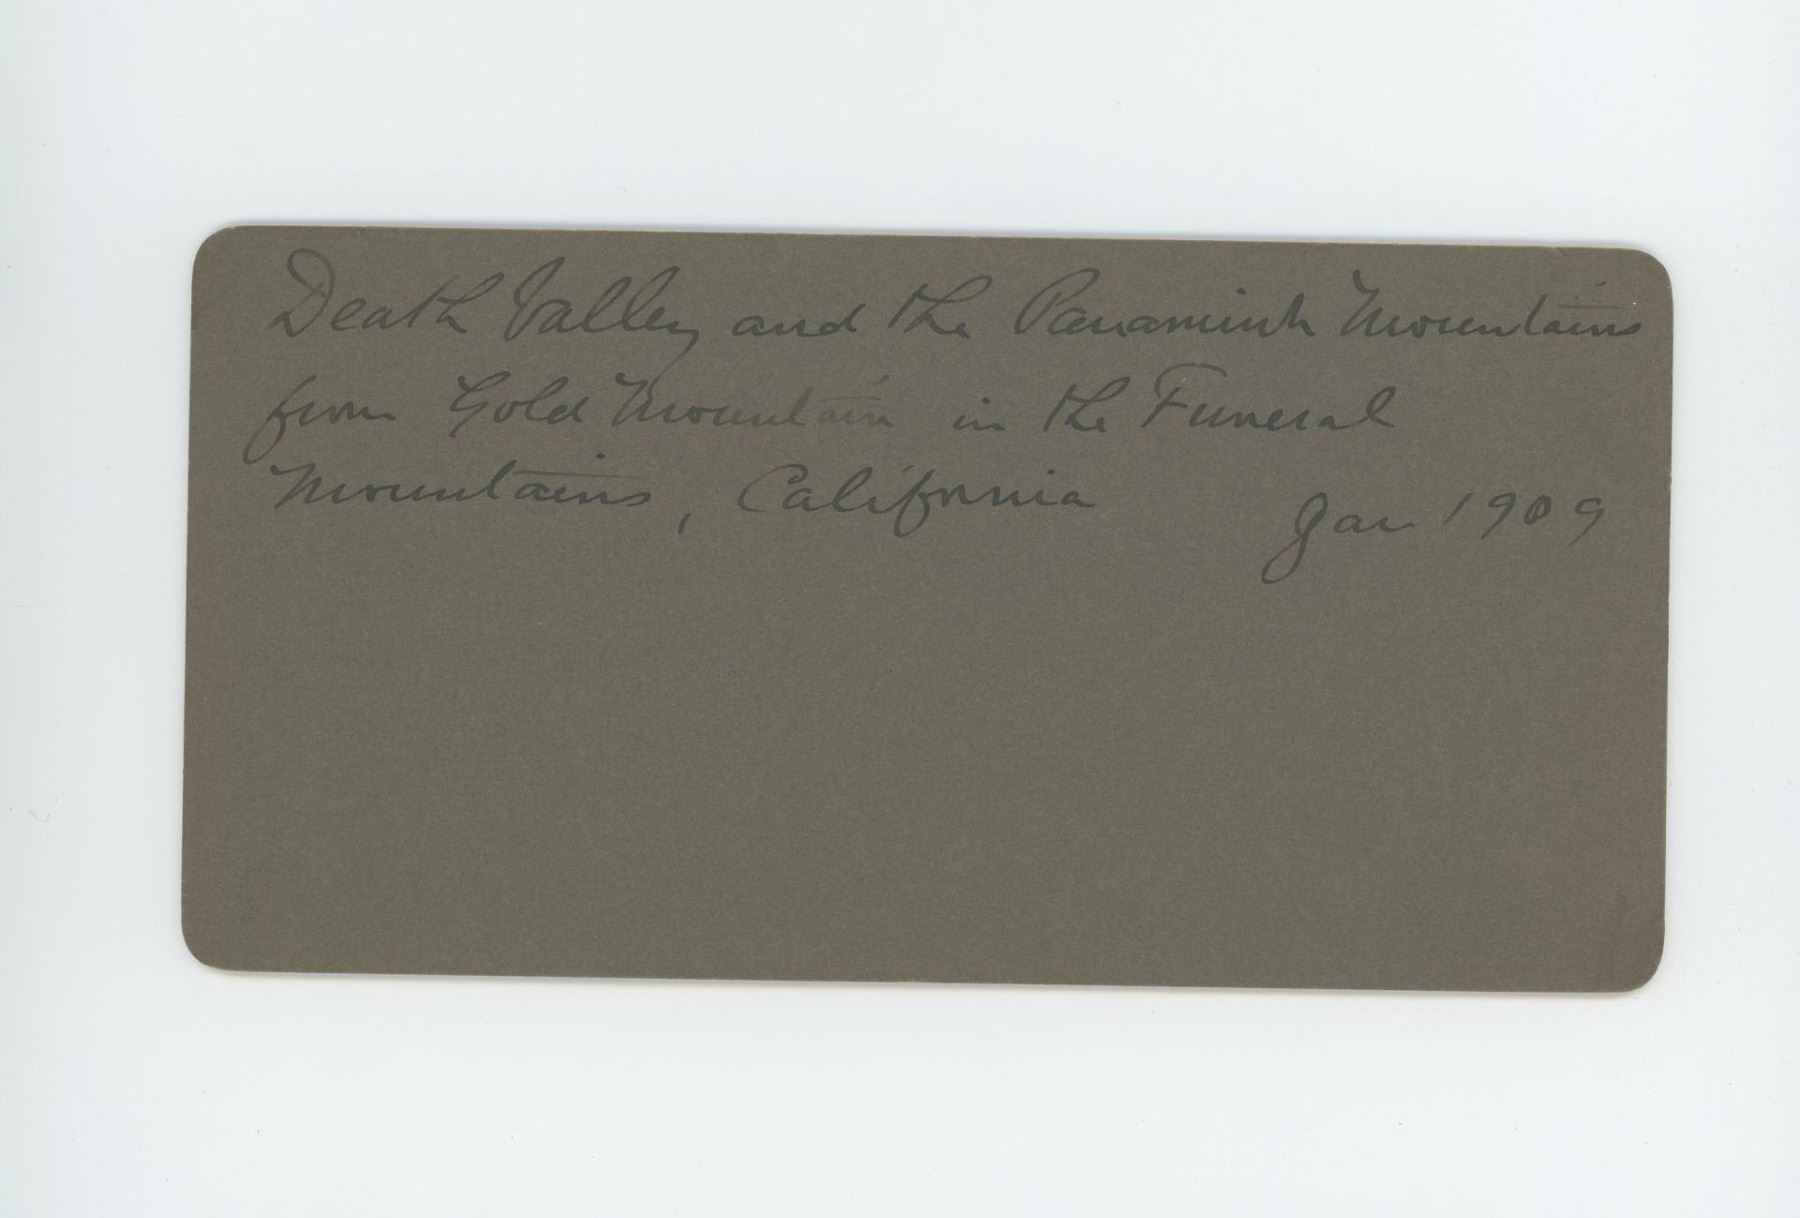 Death Valley and the Panamint Mountains
from Gold Mountain in the Funeral
Mountains, California Jan 1909